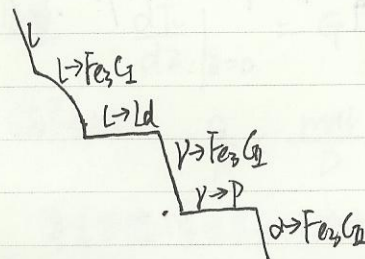 L
L→Fe₃CⅠ
L→Ld
γ→Fe₃CⅡ
γ→P
α→Fe₃CⅢ